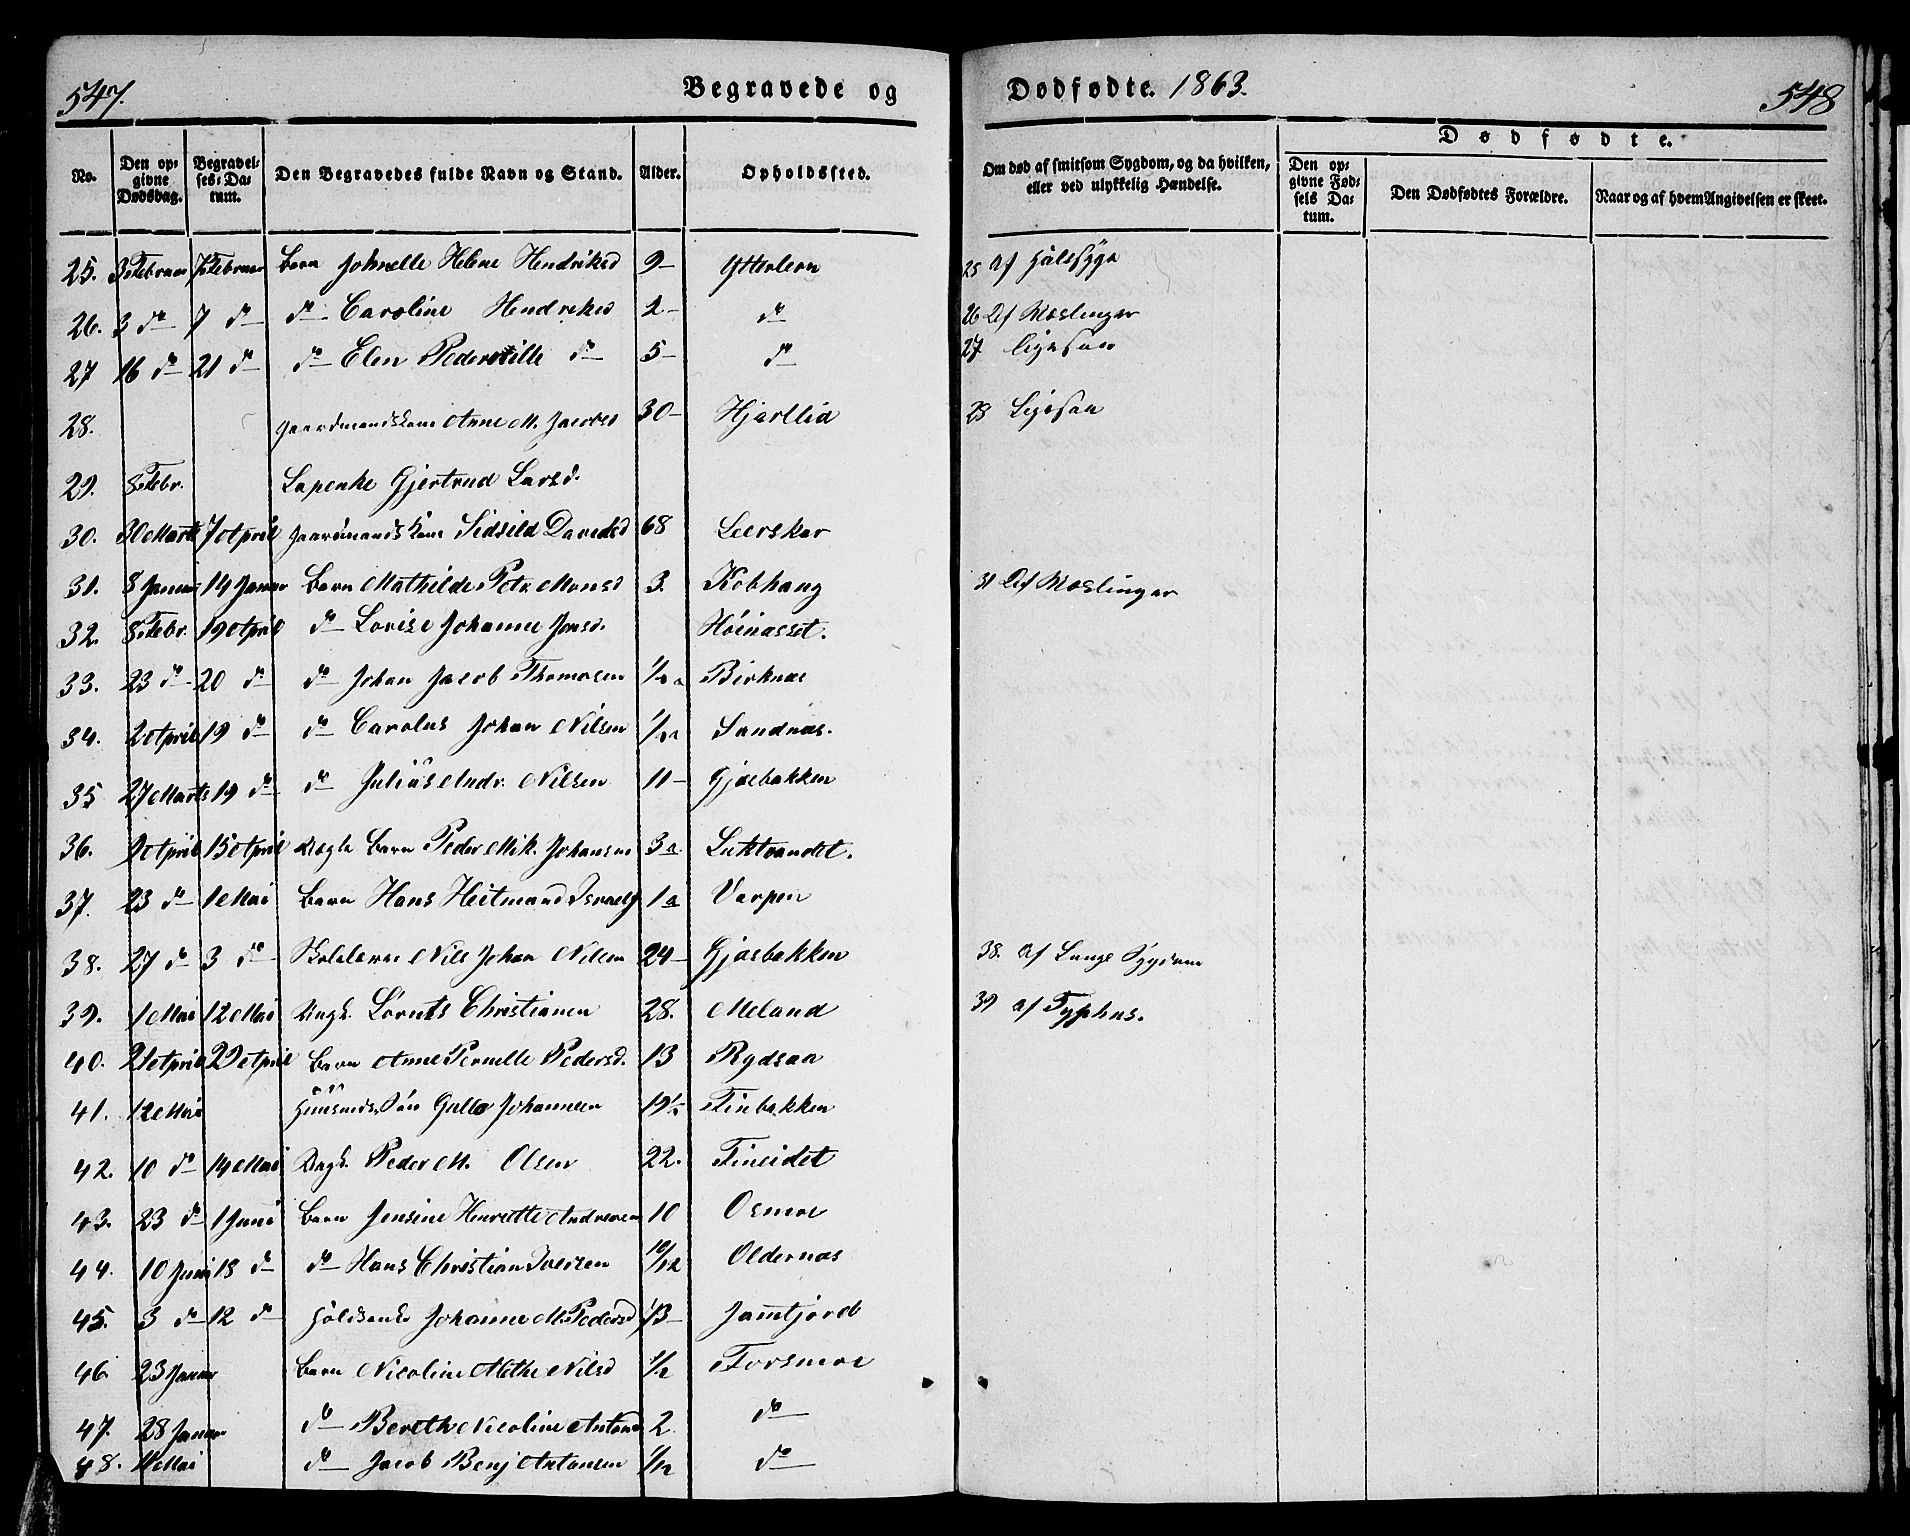 547.
Begravede og
Dødfødte. 1863.
548
No.
Den opgivne Dødsdag.
Begravelses-Datum.
Den Begravedes fulde Navn og Stand.
Alder.
Opholdssted.
Om død af smitsom Sygdom, og da hvilken, eller ved ulykkelig Hændelse.
Dødfødte.
Den opgivne Fødsels Datum.
Den Dødfødtes Forældre.
Naar og af hvem Angivelsen er skeet.
25. 3 Februar 7 Februar Barn Johnelle Helene Hendriksd 9 Ytterleren 25 Af Halssyge
26. 3 do 7 do do Caroline Hendriksd 2 do 26 Af Mæslinger
27 16 do 21 do do Elen Pedernille do 5 do 27 Ligesaa
28. Gaardmandskone Anne M. Jacobsd 30 Hjartlid 28 Ligesaa
29. 8 Febr. Lapenke Gjertrud Larsd.
30. 30 Marts 7 April Gaardmandskone Sidsild Davidsd 68 Leerskar
31. 8 Januar 14 Januar Barn Mathilde Petr. Monsd 3. Kobhaug 31 Af Mæslinger
32. 8 Febr. 19 April do Lovise Johanne Jonsd. Høinasset.
33. 23 do 20 do do Johan Jacob Thomasen Birknæs
34. 2 April 19 do do Carolus Johan Nilsen Sandnæs.
35 27 Marts 19 do do Julius Andr. Nilsen 11 Gjæsbakken
36. 9 April 15 April Barn Peder Mik. Johansen 3 a Luktvandet.
37. 23 do 1 Mai Barn Hans Heitmand Israels 1 a Varpen
38. 27 do 3 do Nils Johan Nilsen 24 Gjæsbakken 38. Af Lunge Sygdom
39. 1 Mai 12 Mai Ungk. Lørnts Christiansen 28. Meland 39 af Typhus.
40. 21 April 29 April Barn Anne Pernille Pedersd. 13 Rydsaa
41. 12 Mai Huusmds Søn Gullo Johannsen 19½ Finbakken
42. 10 do 14 Mai Ungk. Peder M. Olsen 22. Fineidet
43. 23 do 1 Juni Barn Jensine Henriette Andresen 10 Osmoe
44. 10 Juni 18 do do Hans Christian Iversen 10/12 Oldernæs
45. 3 do 12 do Johanne M. Pedersd Jamtjord
46. 23 Januar Barn Nicoline Methe Nilsd ½ Forsmoe
47. 28 Januar do Berethe Nicoline Antons 2. do
48. 11 Mai do Jacob Benj Antonsen 1/12 do